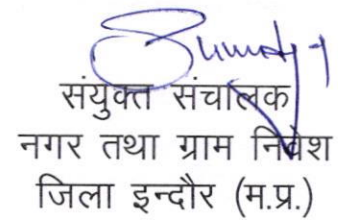 संयुक्त संचालक
नगर तथा ग्राम निवेश
जिला इन्दौर (म.प्र.)